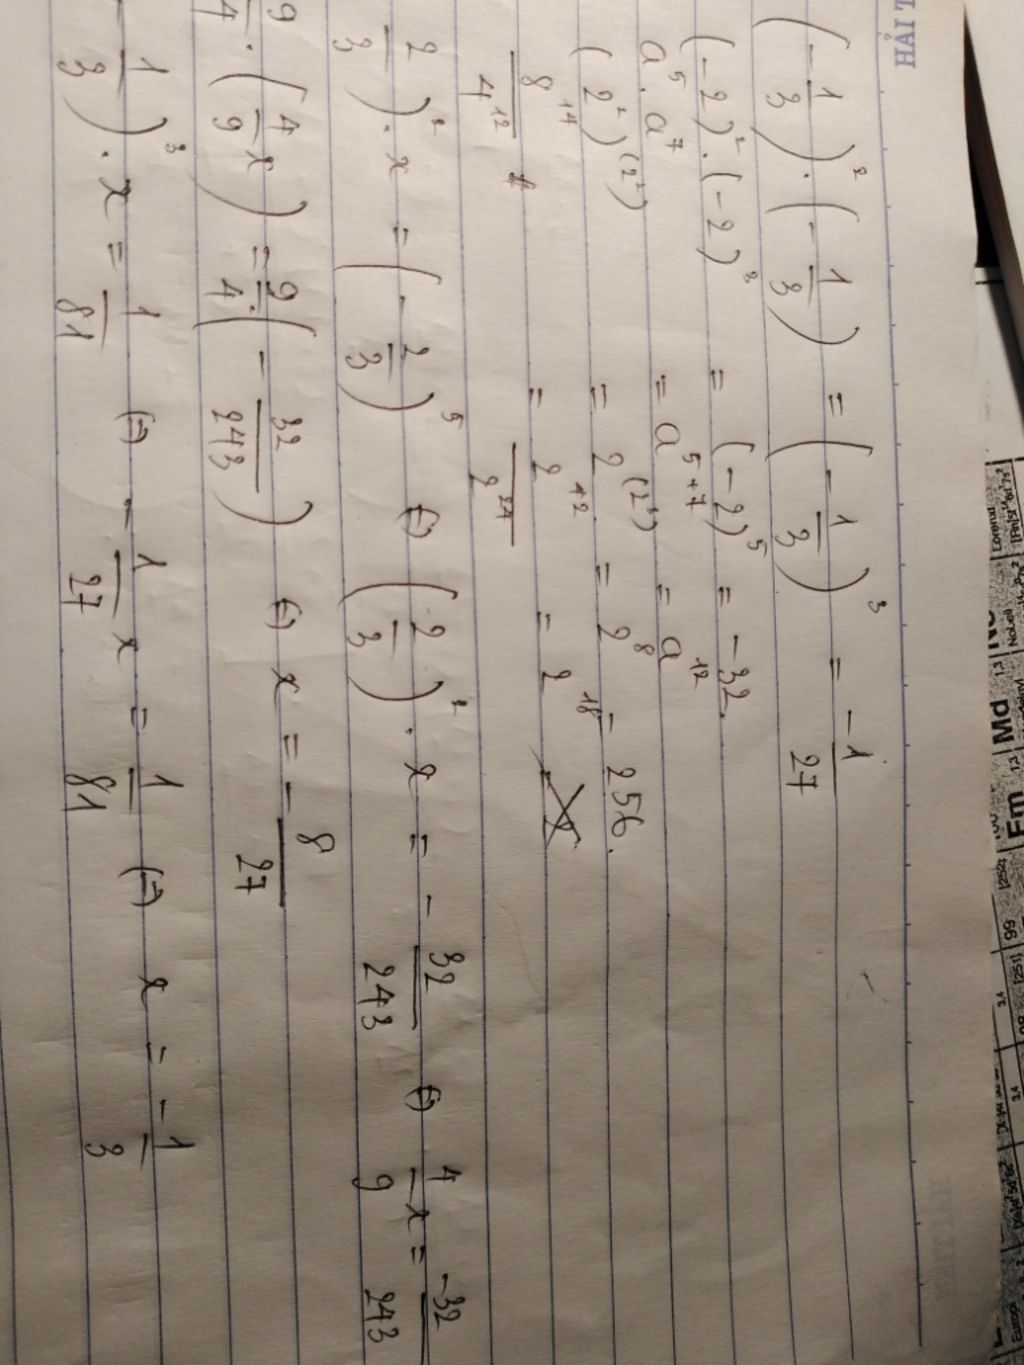 HẢI T
(-1/3)² . (-1/3) = (-1/3)³ = -1/27
(-2)² . (-2)³ = (-2)⁵ = -32
a⁵ . a⁷ = a⁵⁺⁷ = a¹²
(2²)^(2²) = 2^(2³) = 2⁸ = 256.
8¹⁴/4¹² = 2⁴²/2²⁴ = 2¹⁸
2/3)² . x = (-2/3)⁵ (=) (2/3)² . x = -32/243 (=) 4/9 x = -32/243
9/4 . (4/9 x) = 9/4 . (-32/243) (=) x = -8/27
-1/3)³ . x = 1/81 (=) -1/27 x = 1/81 (=) x = -1/3
Md
Fm